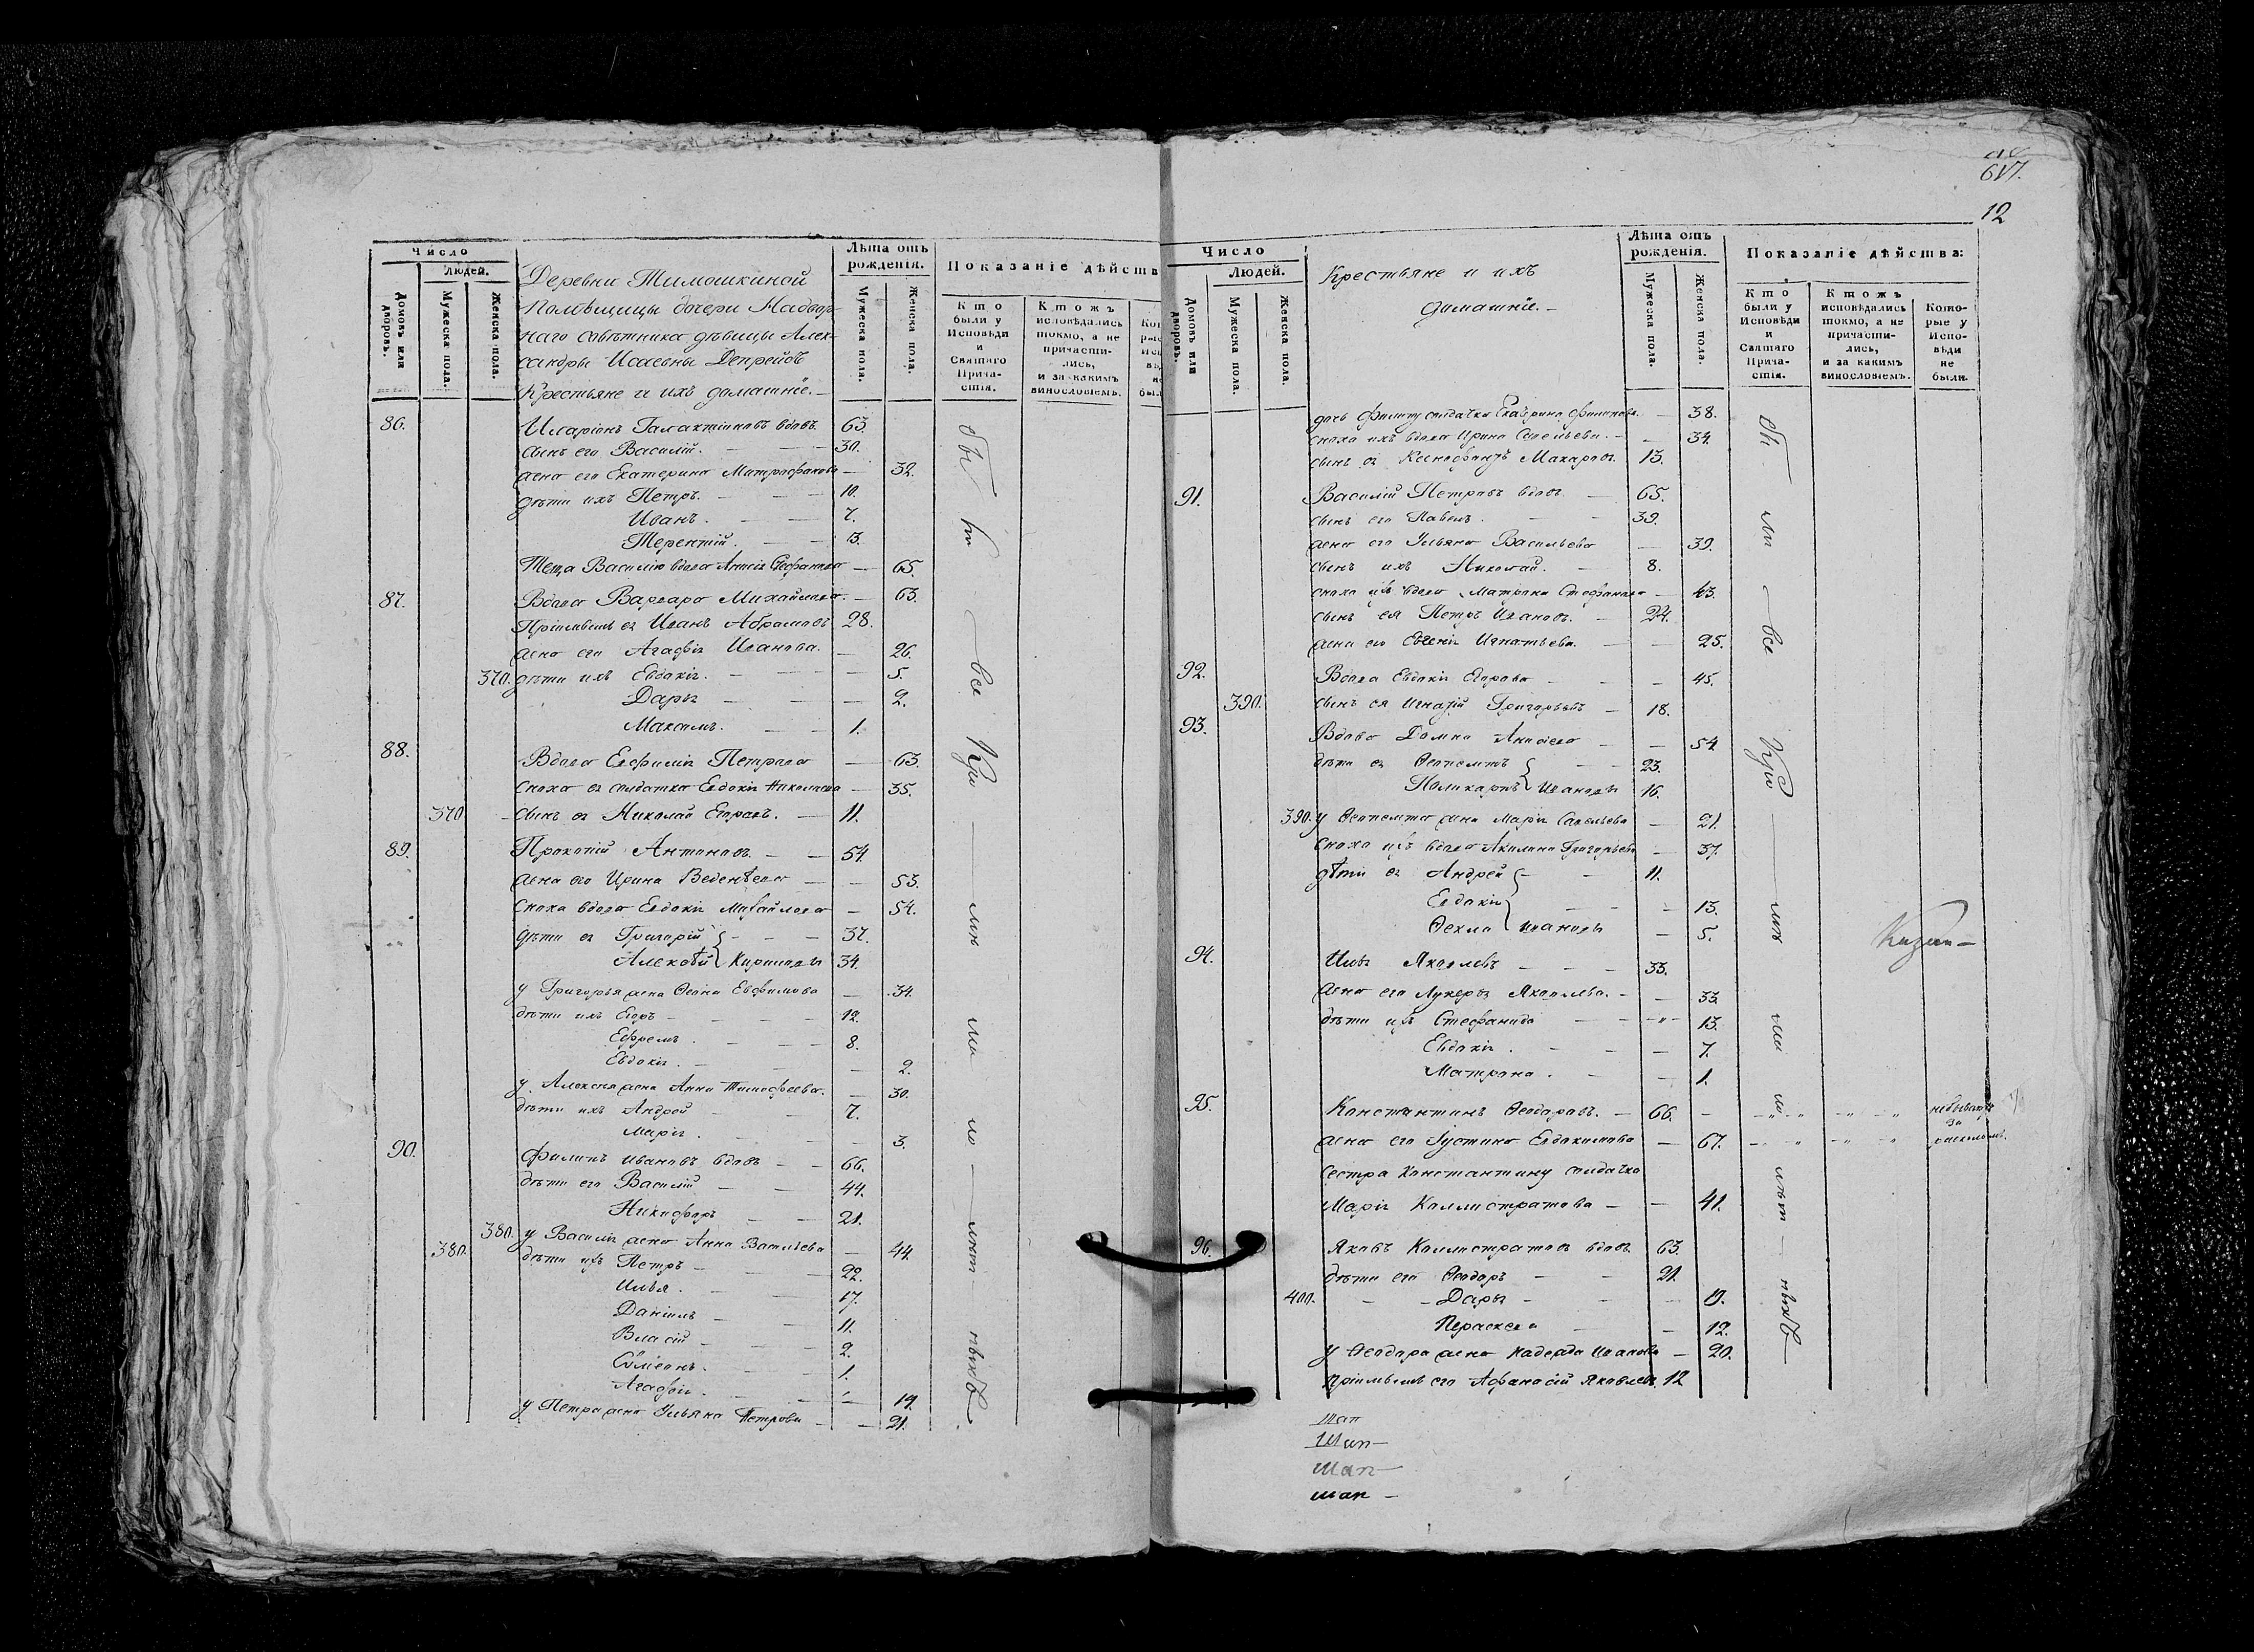 Число
Людей.
Домовъ или дворовъ.
Мужеска пола.
Женска пола.
Деревни Тимошкиной
Помѣщицы дочери Надвор-
наго совѣтника дѣвицы Алек-
сандры Исаевны Депрейсъ
Крестьяне и ихъ домашніе. —
Лѣта отъ рожденія.
Мужеска пола.
Женска пола.
Показаніе дѣйств
Кто были у Исповѣди и Святаго Прича-стія.
Ктожъ исповѣдались токмо, а не причасти-лись, и за какимъ винословіемъ.
86. Иларіонъ Галактіоновъ вдовъ. 63.
сынъ его Василій. — 30.
жена его Екатерина Митрофанова — 32.
дѣти ихъ Петръ. — 10.
Иванъ. — 7.
Терентій. — 3.
Теща Василію вдова Анисія Стефанова — 65.
87. Вдова Варвара Михайлова. — 63.
Пріимышъ ея Иванъ Абрамовъ 28.
жена его Агафія Иванова. — 26.
370. дѣти ихъ Евдокія. — 5.
Дарья — 2.
Максимъ. — 1.
88. Вдова Евфимія Петрова — 63.
Сноха ея солдатка Евдокія Николаева — 35.
370 Сынъ ея Николай Егоровъ. — 11.
89. Прокопій Антоновъ. — 54.
жена его Ирина Веденѣева — 53.
Сноха вдова Евдокія Михайлова — 54.
дѣти ея Григорій — 37.
Алексѣй Кириловы 34.
у Григорья жена Ѳеона Евфимова — 34.
дѣти ихъ Егоръ — 12.
Ефремъ. — 8.
Евдокія. — 2.
у Алексѣя жена Анна Тимофеева. — 30.
дѣти ихъ Андрей — 7.
Марія. — 3.
90. Филипъ Ивановъ вдовъ — 66.
дѣти его Василій — 44.
Никифоръ — 21.
380. у Василія жена Анна Васильева — 44
380. дѣти ихъ Петръ — 22.
Илья. — 17.
Даніилъ — 11.
Власій — 2.
Сѵмеонъ. — 1.
Агафія. — 19.
у Петра жена Ульяна Петрова — 21.
617.
12
Число
Людей.
Домовъ или дворовъ.
Мужеска пола.
Женска пола.
Крестьяне и ихъ
домашніе. —
Лѣта отъ рожденія.
Мужеска пола.
Женска пола.
Показаніе дѣйства:
Кто были у Исповѣди и Святаго Прича-стія.
Ктожъ исповѣдались токмо, а не причасти-лись, и за какимъ винословіемъ.
Кото-рые у Испо-вѣди не были.
дочь Филипу солдатка Екатерина Филипова. — 38.
сноха ихъ вдова Ирина Савельева. — 34.
сынъ ея Ксенофонтъ Макаровъ. 13.
91. Василій Петровъ вдовъ — 65.
сынъ его Павелъ. — 39.
жена его Ульяна Васильева — 39.
сынъ ихъ Николай. — 8.
сноха ихъ вдова Матрона Стефанова — 43.
сынъ ея Петръ Ивановъ. — 24.
жена его Евгенія Игнатьева. — 25.
92. Вдова Евдокія Егорова — 45.
390. сынъ ея Игнатій Григорьевъ — 18.
93. Вдова Домна — 54
дѣти ея Ѳеопемптъ — 23.
Поликарпъ Ивановы 16.
390. у Ѳеопемпта жена Марія Савельева — 21.
Сноха ихъ вдова Акилина Григорьева — 37.
дѣти ея Андрей — 11.
Евдокія — 13.
Ѳекла Ивановы — 5.
94. Илья Яковлевъ — 33.
жена его Лукерья Яковлева. — 33.
дѣти ихъ Стефанида — 13.
Евдокія. — 7.
Матрона. — 1.
95. Константинъ Ѳеодоровъ. — 66. небываютъ за
жена его Іустина Евдокимова — 67. расколомъ.
Сестра Константину солдатка
Марія Каллистратова — 41.
96. Яковъ Каллистратовъ вдовъ 63.
дѣти его Ѳеодоръ — 21.
400. Дарья — 19.
Параскева — 12.
у Ѳеодора жена Надежда Иванова — 20.
Пріимышъ его Афанасій Яковлевъ. 12